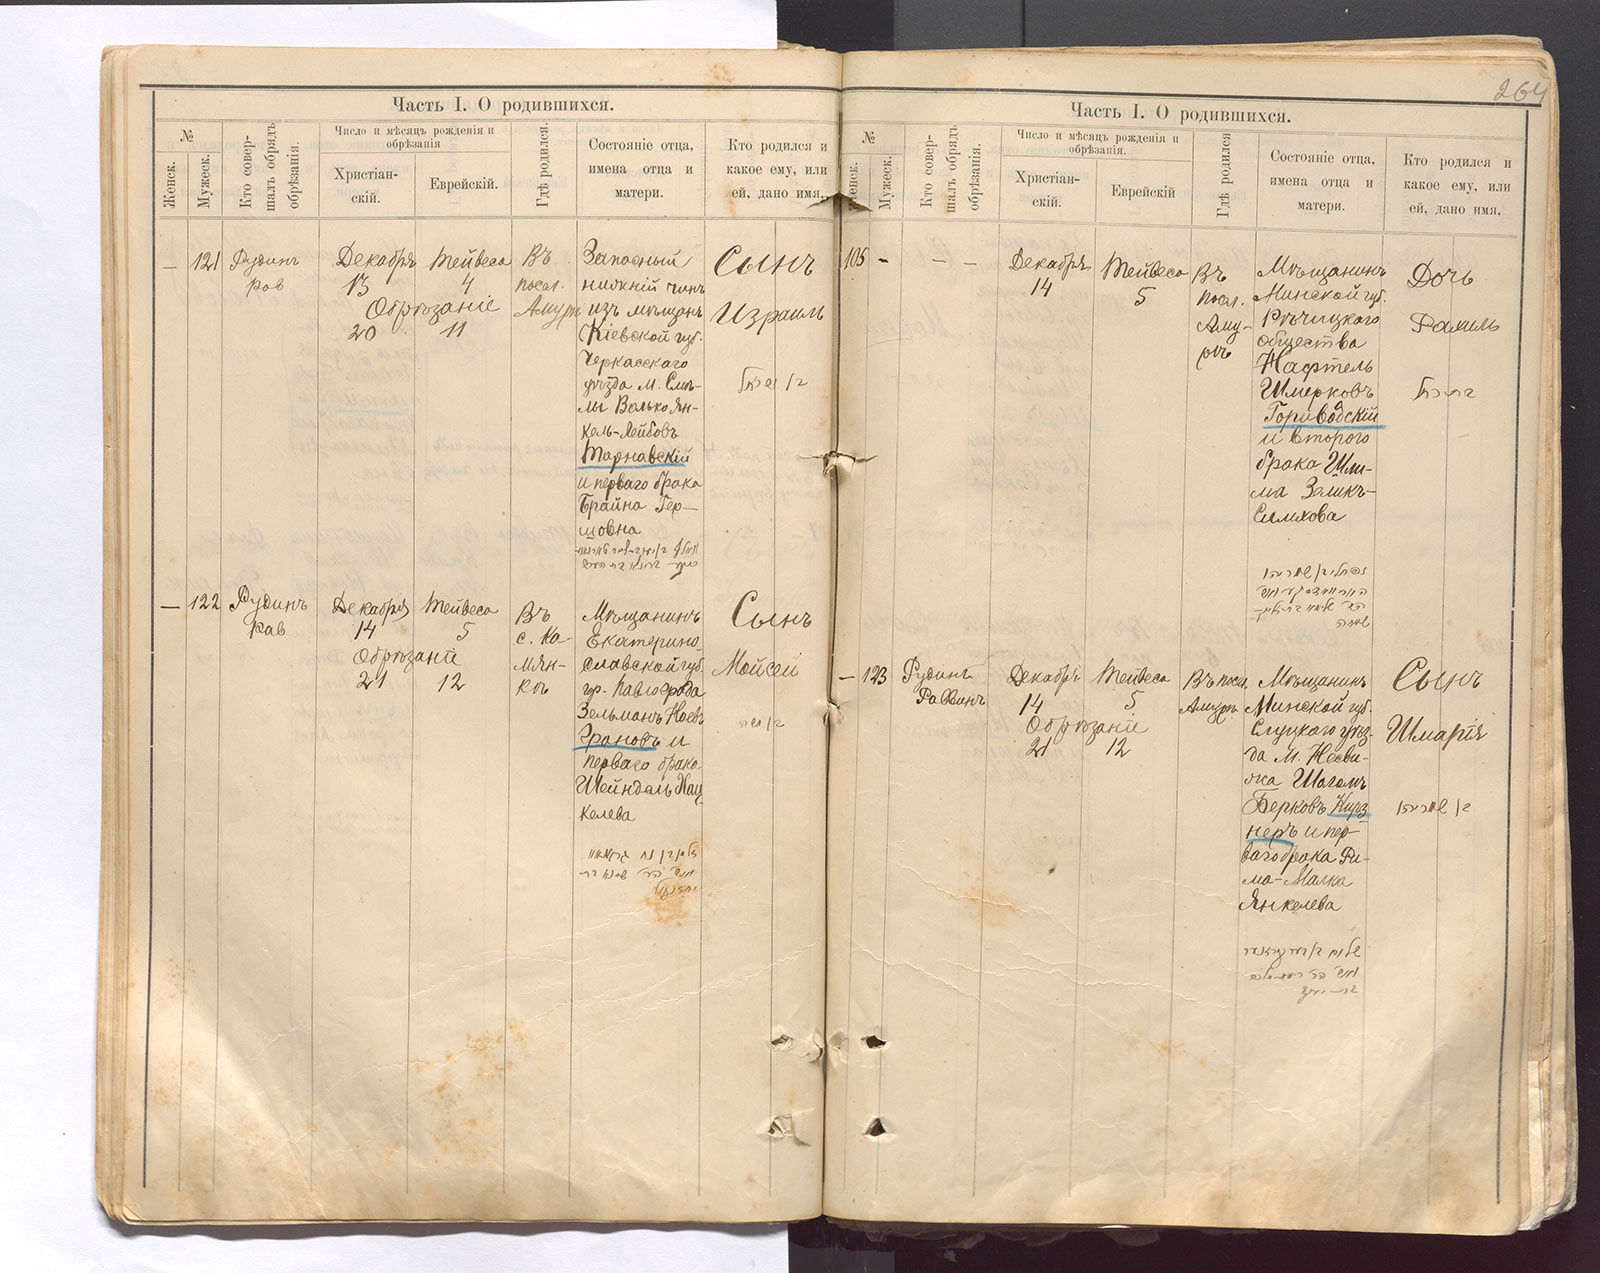 Часть I. О родившихся.
№
Женск.
Мужеск.
Кто совер-
шалъ обрядъ
обрѣзанія.
Число и мѣсяцъ рожденія и
обрѣзанія
Христіан-
скій.
Еврейскій.
Гдѣ родился.
Состояніе отца,
имена отца и
матери.
Кто родился и
какое ему, или
ей, дано имя.
— 121
Рудинъ
рав
Декабря
13
Тейвеса
4
Обрѣзаніе
20 11
Въ
посел.
Амурѣ
Запасный
нижній чинъ
изъ мѣщанъ
Кіевской губ.
Черкасскаго
уѣзда м. Смѣ-
лы Волько Ян-
кель-Лейбовъ
Тарнавскій
и перваго брака
Брайна Гер-
шовна
Сынъ
Израиль
בן ישראל
— 122
Рудинъ
рав
Декабря
14
Тейвеса
5
Обрѣзаніе
21 12
Въ
с. Ка-
мян-
кѣ
Мѣщанинъ
Екатерино-
славской губ.
гр. Павлограда
Зельманъ Ноевъ
Грановъ и
перваго брака
Шейндель Хац-
келева
Сынъ
Мойсей
בן משה
264
Часть I. О родившихся.
№
Женск.
Мужеск.
Кто совер-
шалъ обрядъ
обрѣзанія.
Число и мѣсяцъ рожденія и
обрѣзанія.
Христіан-
скій.
Еврейскій
Гдѣ родился
Состояніе отца,
имена отца и
матери.
Кто родился и
какое ему, или
ей, дано имя,
105 - - -
Декабря
14
Тейвеса
5
Въ
посел.
Аму-
рѣ
Мѣщанинъ
Минской губ.
Рѣчицкаго
общества
Нафтель
Шмерковъ
Гориводскій
и второго
брака Шли-
ма Зеликъ-
Симхова
Дочь
Рахиль
בת רחל
— 123
Рудинъ
Раввинъ
Декабря
14
Тейвеса
5
Обрѣзаніе
21 12
Въ посел.
Амурѣ
Мѣщанинъ
Минской губ.
Слуцкаго уѣз-
да м. Несви-
жа Шоломъ
Берковъ Кирз-
неръ и пер-
ваго брака Ри-
ма-Малка
Янкелева
Сынъ
Шмарія
בן שמריהו